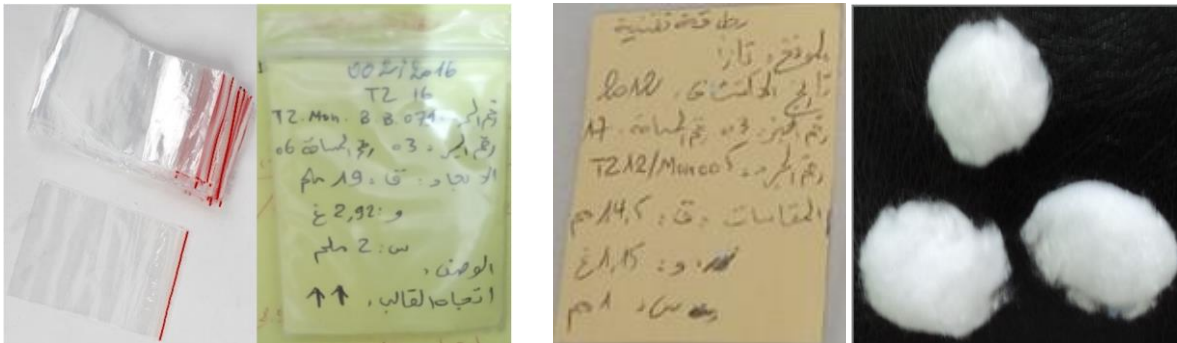 002/2016
TZ 16
رقم الجرد: TZ.Mon.B B.074
رقم الحيز: 03 رقم المساحة 06
الاتجاه: ق: 19 ملم
و: 2,92 غ
س: 2 ملم
الوصف:
اتجاه القالب: ↑↑
بطاقة تقنية
الموقع: تازا
تاريخ 2012
رقم الحيز: 03 رقم المساحة: 17
رقم الجرد: TZ12/Mon005
المقاسات: ق: 14,5 م
و: 1,15 غ
س: 1 م